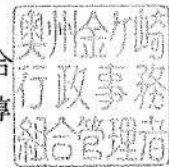 奥州金ケ崎
行政事務
組合管理者